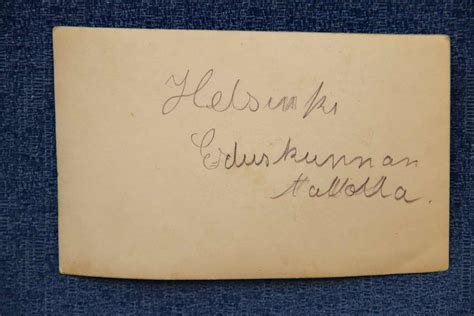 Helsinki
Eduskunnan
tallolla.